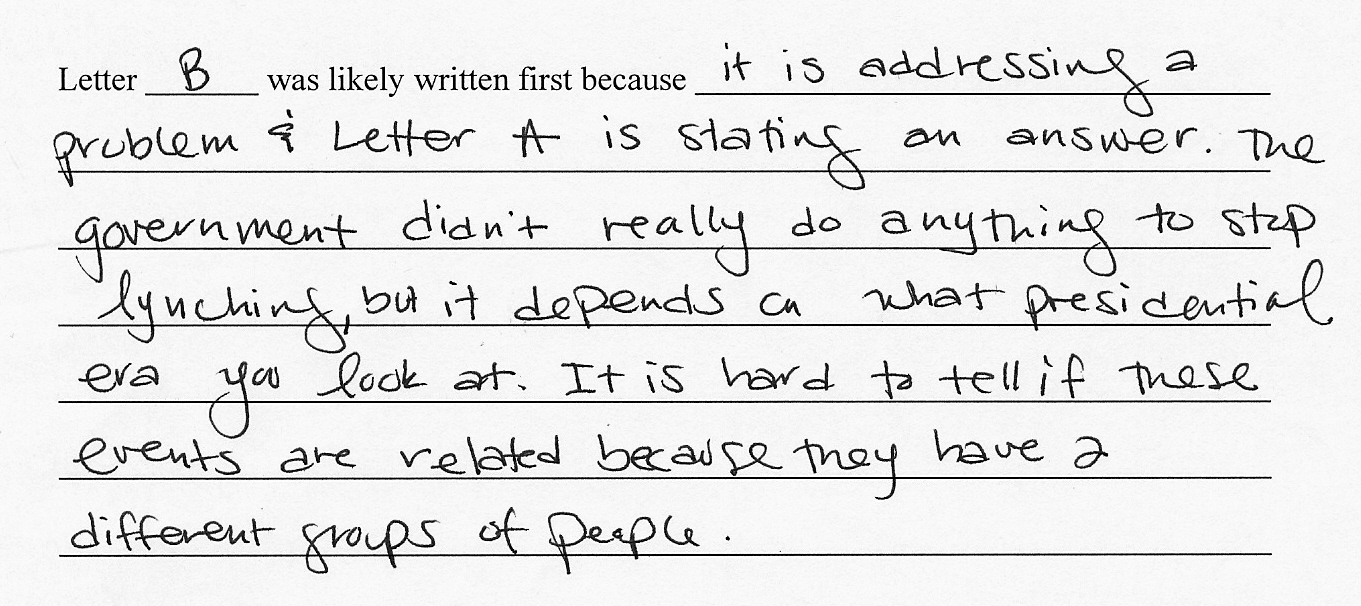 Letter B was likely written first because it is addressing a
problem & Letter A is stating an answer. The
government didn't really do anything to stop
lynching, but it depends on what presidential
era you look at. It is hard to tell if these
events are related because they have 2
different groups of people.